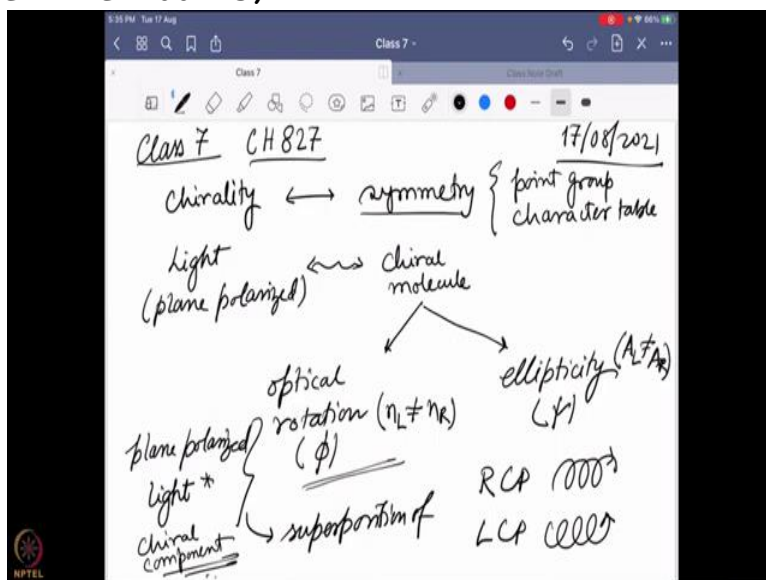 5:35 PM Tue 17 Aug
66%
Class 7
Class 7
Class Note Draft
Class 7 CH 827 17/08/2021
Chirality ↔ symmetry { point group
character table
Light
(plane polarized)
chiral
molecule
optical
rotation (nL ≠ nR)
(ϕ)
ellipticity (AL ≠ AR)
(ψ)
plane polarized
light *
chiral
component
superposition of
RCP
LCP
NPTEL